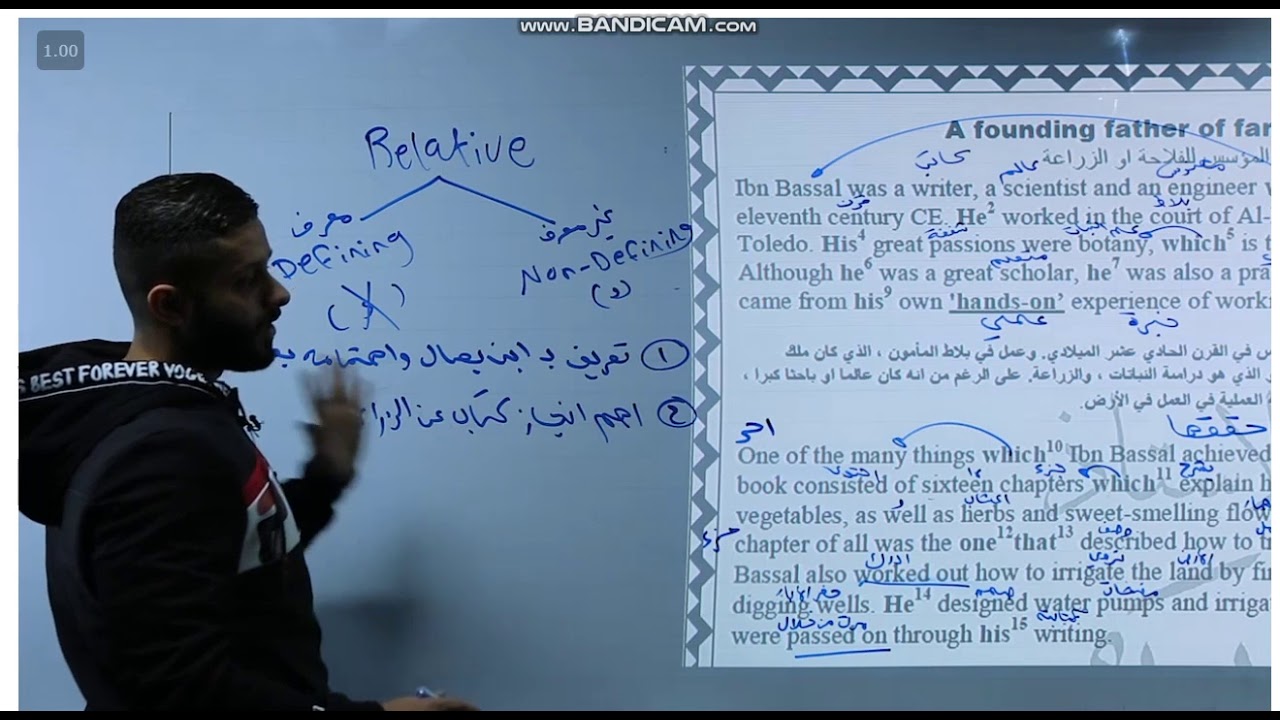 www.BANDICAM.com
1.00
Relative
معرف
غير معرف
Defining
Non-Defining
( و )
(و)
① تعريف بـ ابن بصال واهتمامه
② اهم انجاز كتاب عن الزرا
BEST FOREVER
A founding father of far
المؤسس للفلاحة او الزراعة
كاتب عالم مهندس
Ibn Bassal was a writer, a scientist and an engineer w
قرن بلاط
eleventh century CE. He2 worked in the court of Al-
شغفه علم النبات
Toledo. His4 great passions were botany, which5 is t
متعلم
Although he6 was a great scholar, he7 was also a pra
came from his9 own 'hands-on' experience of worki
عملي خبرة
س في القرن الحادي عشر الميلادي. وعمل في بلاط المأمون ، الذي كان ملك
و الذي هو دراسة النباتات ، والزراعة. على الرغم من انه كان عالما او باحثا كبيرا ،
ة العملية في العمل في الأرض.
حققها
One of the many things which10 Ibn Bassal achieved
احتوى ١٦ جزء يشرح
book consisted of sixteen chapters which11 explain h
و اعشاب
vegetables, as well as herbs and sweet-smelling flow
جزء وصف
chapter of all was the one12that13 described how to tr
ادرك تروي الأرض
Bassal also worked out how to irrigate the land by fin
حفر الآبار صمم مضخات
digging wells. He14 designed water pumps and irriga
مرت من خلال كتابته
were passed on through his15 writing.